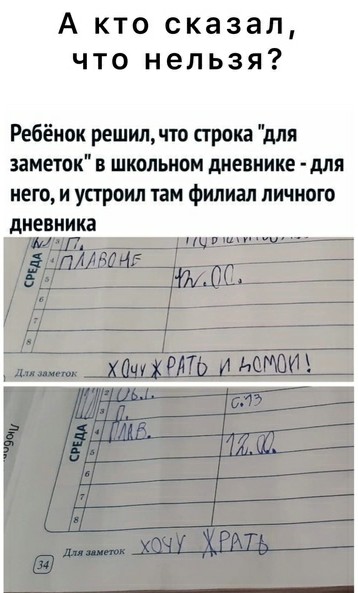 А кто сказал,
что нельзя?
Ребёнок решил, что строка "для
заметок" в школьном дневнике - для
него, и устроил там филиал личного
дневника
3 П.
СРЕДА
4 ПЛАВОНЕ
12.00.
5
6
7
8
Для заметок ХОЧУ ЖРАТЬ И ДОМОЙ!
2
3 П. с.13
СРЕДА
4 ПЛАВ. 12.00.
5
6
7
8
Для заметок ХОЧУ ЖРАТЬ
34